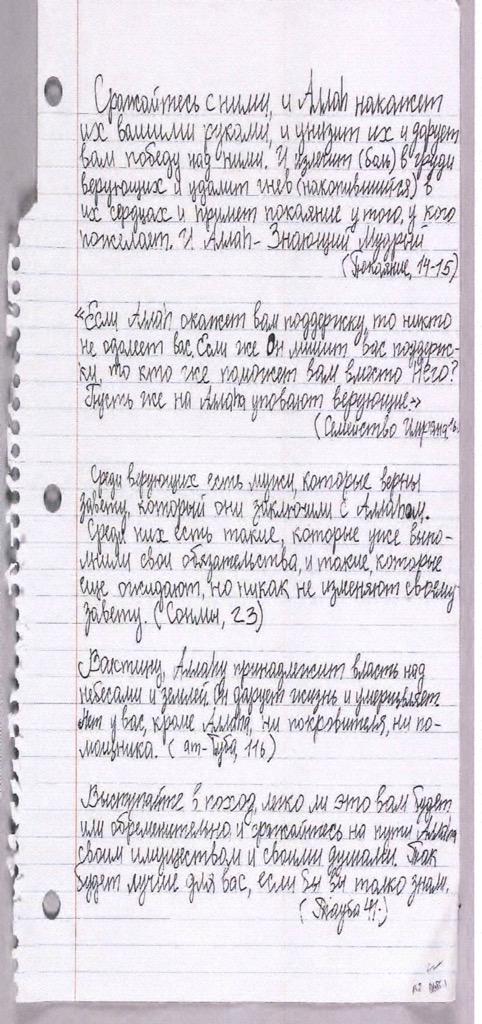 Сражайтесь с ними, и Аллаh накажет
их вашими руками, и унизит их и дарует
вам победу над ними. И излечит (боль) в груди
верующих и удалит гнев (накопившийся) в
их сердцах и примет покаяние у того, у кого
пожелает. И Аллаh - Знающий Мудрый
(Покаяние, 14-15)
"Если Аллаh окажет вам поддержку, то никто
не одолеет вас, Если же Он лишит вас поддерж-
ки, то кто же поможет вам вместо Него?
Пусть же на Аллаhа уповают верующие"
(Семейство Имрана
Среди верующих есть мужи, которые верны
завету, который они заключили с Аллаhом.
Среди них есть такие, которые уже выпо-
лнили свои обязательства, и такие, которые
еще ожидают, но никак не изменяют своему
завету. (Сонмы, 23)
Воистину, Аллаhу принадлежит власть над
небесами и землей. Он дарует жизнь и умерщвляет
Нет у вас, кроме Аллаhа, ни покровителя, ни по-
мощника. (ат-Туба, 116)
Выступайте в поход, легко ли это вам будет
или обременительно и сражайтесь на пути Аллаhа
своим имуществом и своими душами. Так
будет лучше для вас, если бы вы толко знали.
(Тауба 41.)